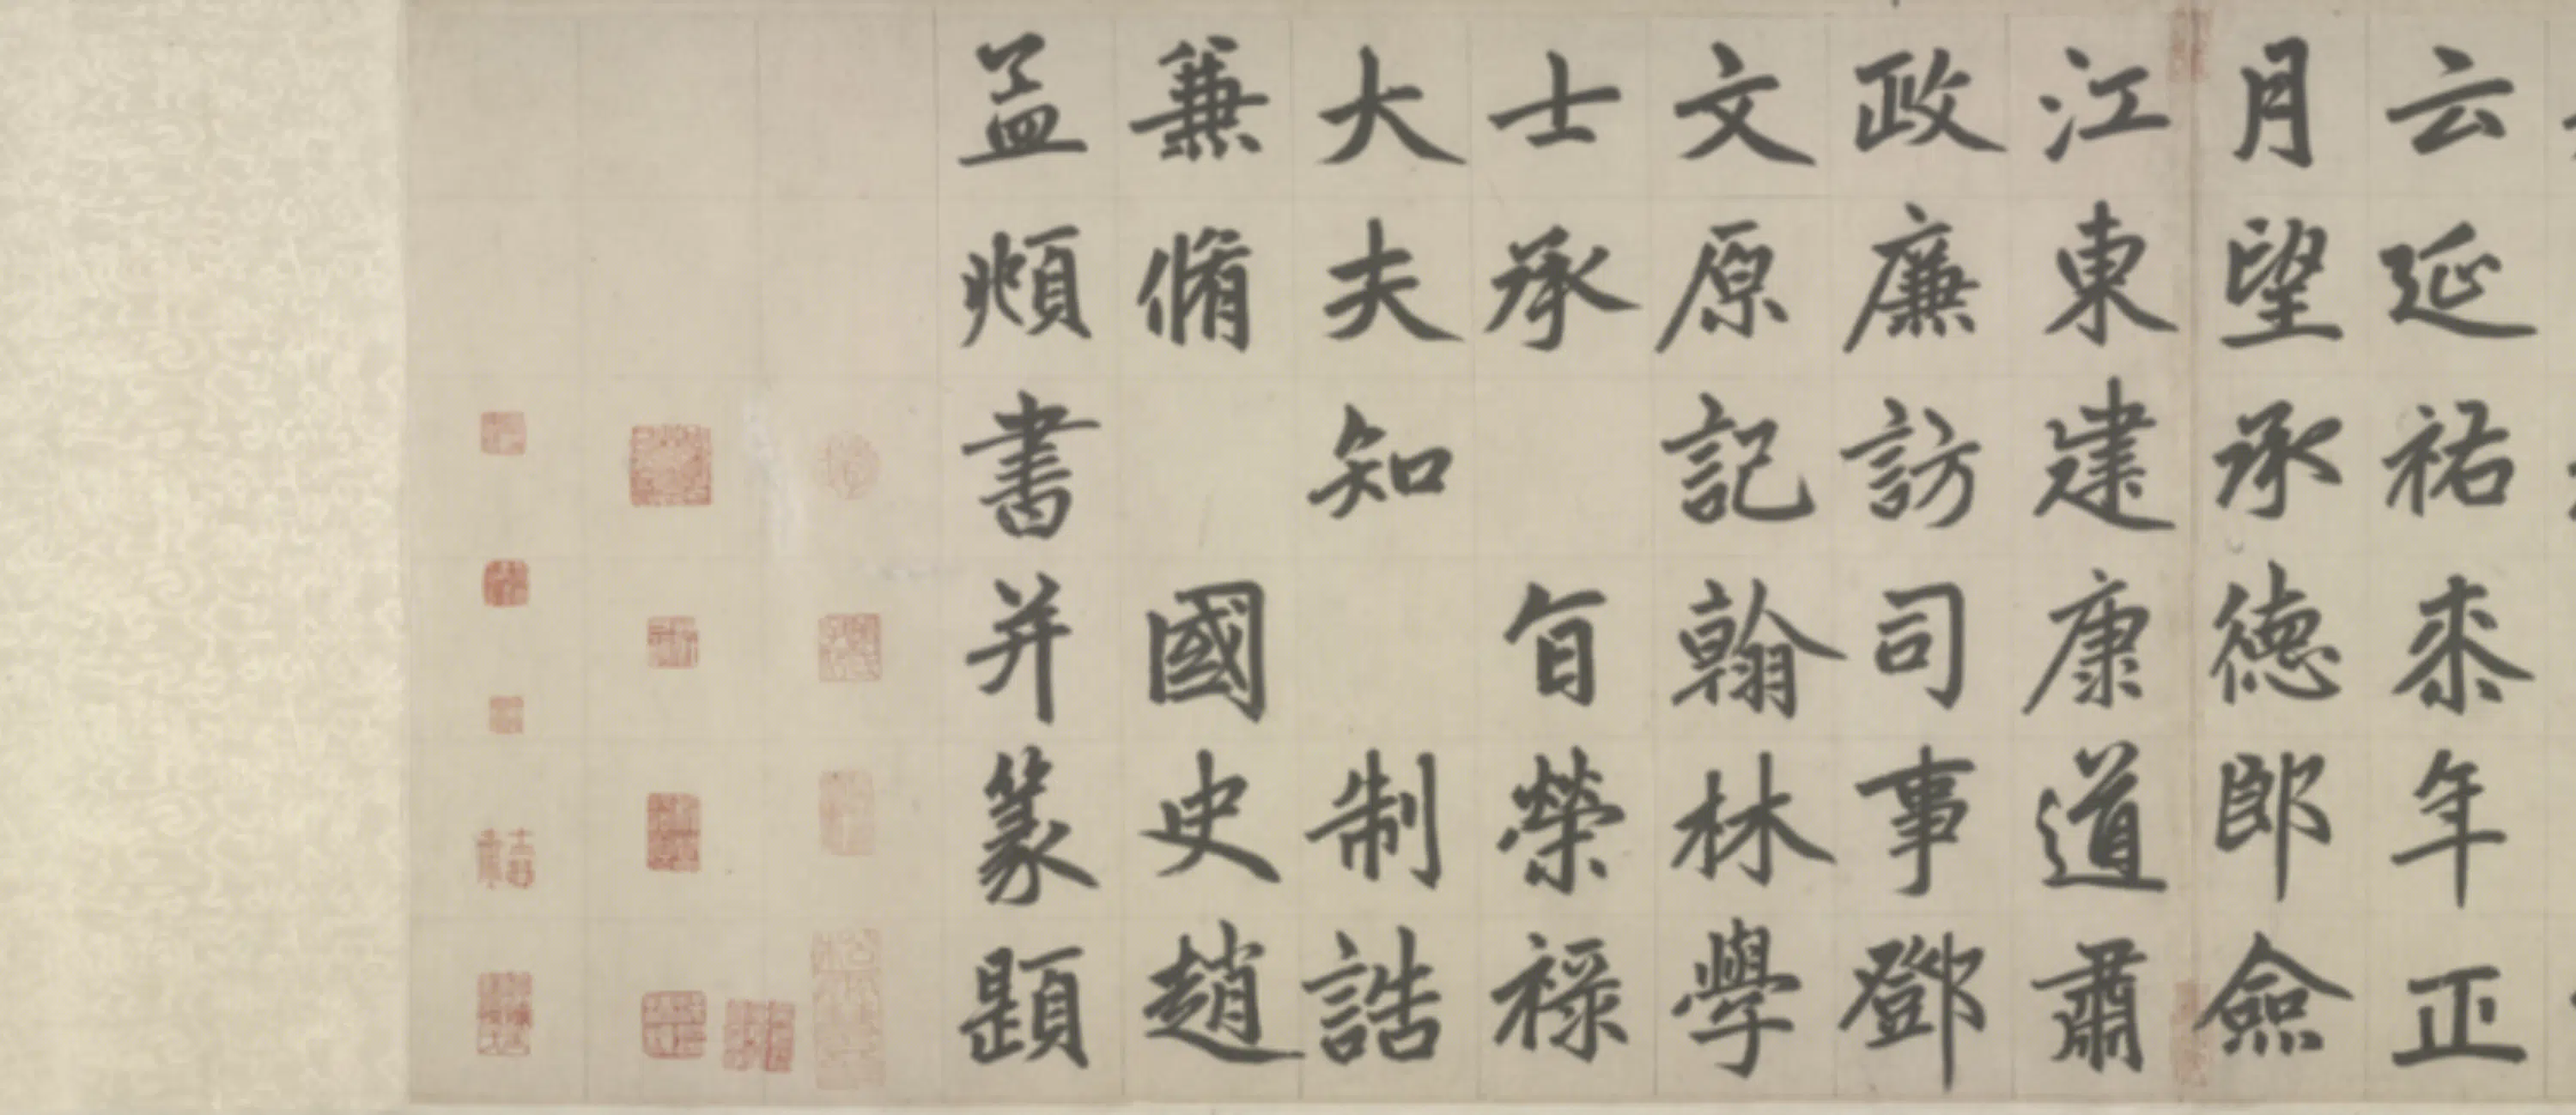 云延祐柰年正
月望承德郎僉
江東建康道肅
政廉訪司事鄧
文原記翰林學
士承旨榮祿
大夫知制誥
兼脩國史趙
孟頫書并篆題